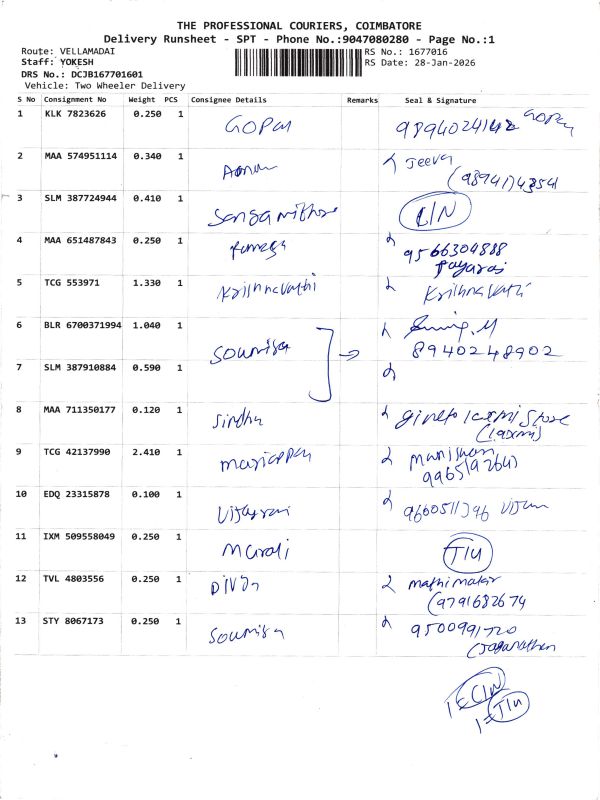 THE PROFESSIONAL COURIERS, COIMBATORE
Delivery Runsheet - SPT - Phone No.:9047080280 - Page No.:1
Route: VELLAMADAI
Staff: YOKESH
DRS No.: DCJB167701601
Vehicle: Two Wheeler Delivery
RS No.: 1677016
RS Date: 28-Jan-2026
S No Consignment No Weight PCS Consignee Details Remarks Seal & Signature
1 KLK 7823626 0.250 1 GOPAL 9894024142 GOPAL
2 MAA 574951114 0.340 1 Jeeva
3 SLM 387724944 0.410 1 Sangamithra
4 MAA 651487843 0.250 1 9566304888
5 TCG 553971 1.330 1 Krishnavathi Krishnavathi
6 BLR 6700371994 1.040 1 Soumiya
8940248902
7 SLM 387910884 0.590 1
8 MAA 711350177 0.120 1 Sindhu Store
(laxmi)
9 TCG 42137990 2.410 1
10 EDQ 23315878 0.100 1
11 IXM 509558049 0.250 1 Murali
12 TVL 4803556 0.250 1 Divya
(9791682674
13 STY 8067173 0.250 1 Soumiya